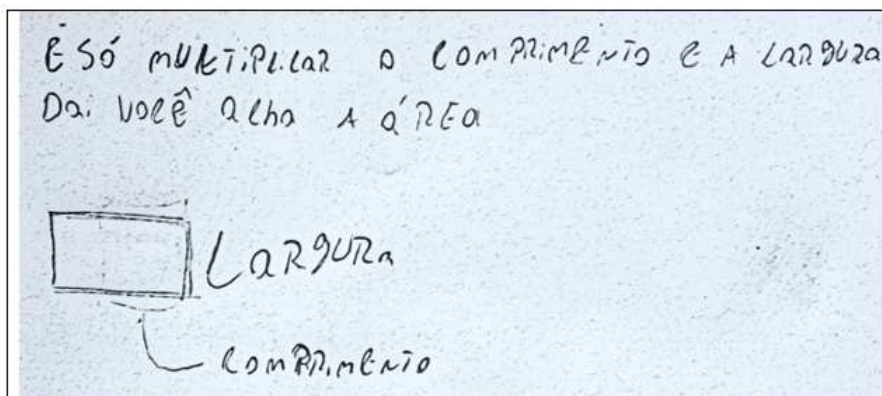 É Só mULTiPLicaR o COMPRiMENTO E A LARgURa
Dai VOCÊ acha A áREa
LARgURa
COMPRiMENTO